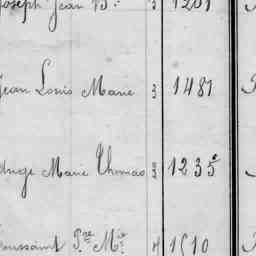 Joseph Jean Bte 3 1201
Jean Louis Marie 3 1481
Ange Marie Thomas 3 1235
Toussaint Pre Mie 4 1510